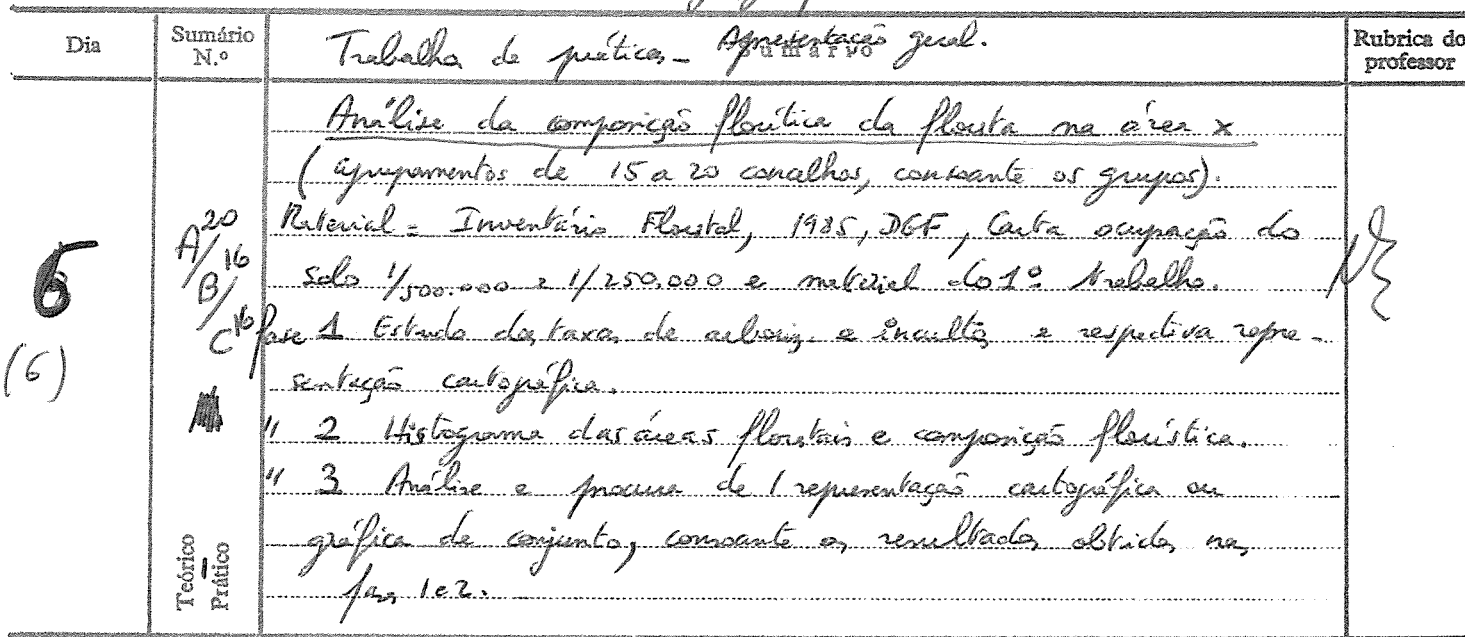 Dia
Sumário N.º
Sumário
Rubrica do professor
Trabalho de práticas - Apresentação geral.
Análise da composição florítica da floresta na área x
(agrupamentos de 15 a 20 concelhos, consoante os grupos).
Material = Inventário Florestal, 1985, DGF, Carta ocupação do
solo 1/500.000 e 1/250.000 e material do 1º trabalho.
fase 1 Estudo das taxas de arboriz. e incultos e respectiva repre-
sentação cartográfica.
" 2 Histograma das áreas florestais e composição florística.
" 3 Análise e procura de 1 representação cartográfica ou
gráfica de conjunto, consoante os resultados obtidos nas
fases 1 e 2.
6
(6)
A/20
B/16
C16
Teórico
Prático